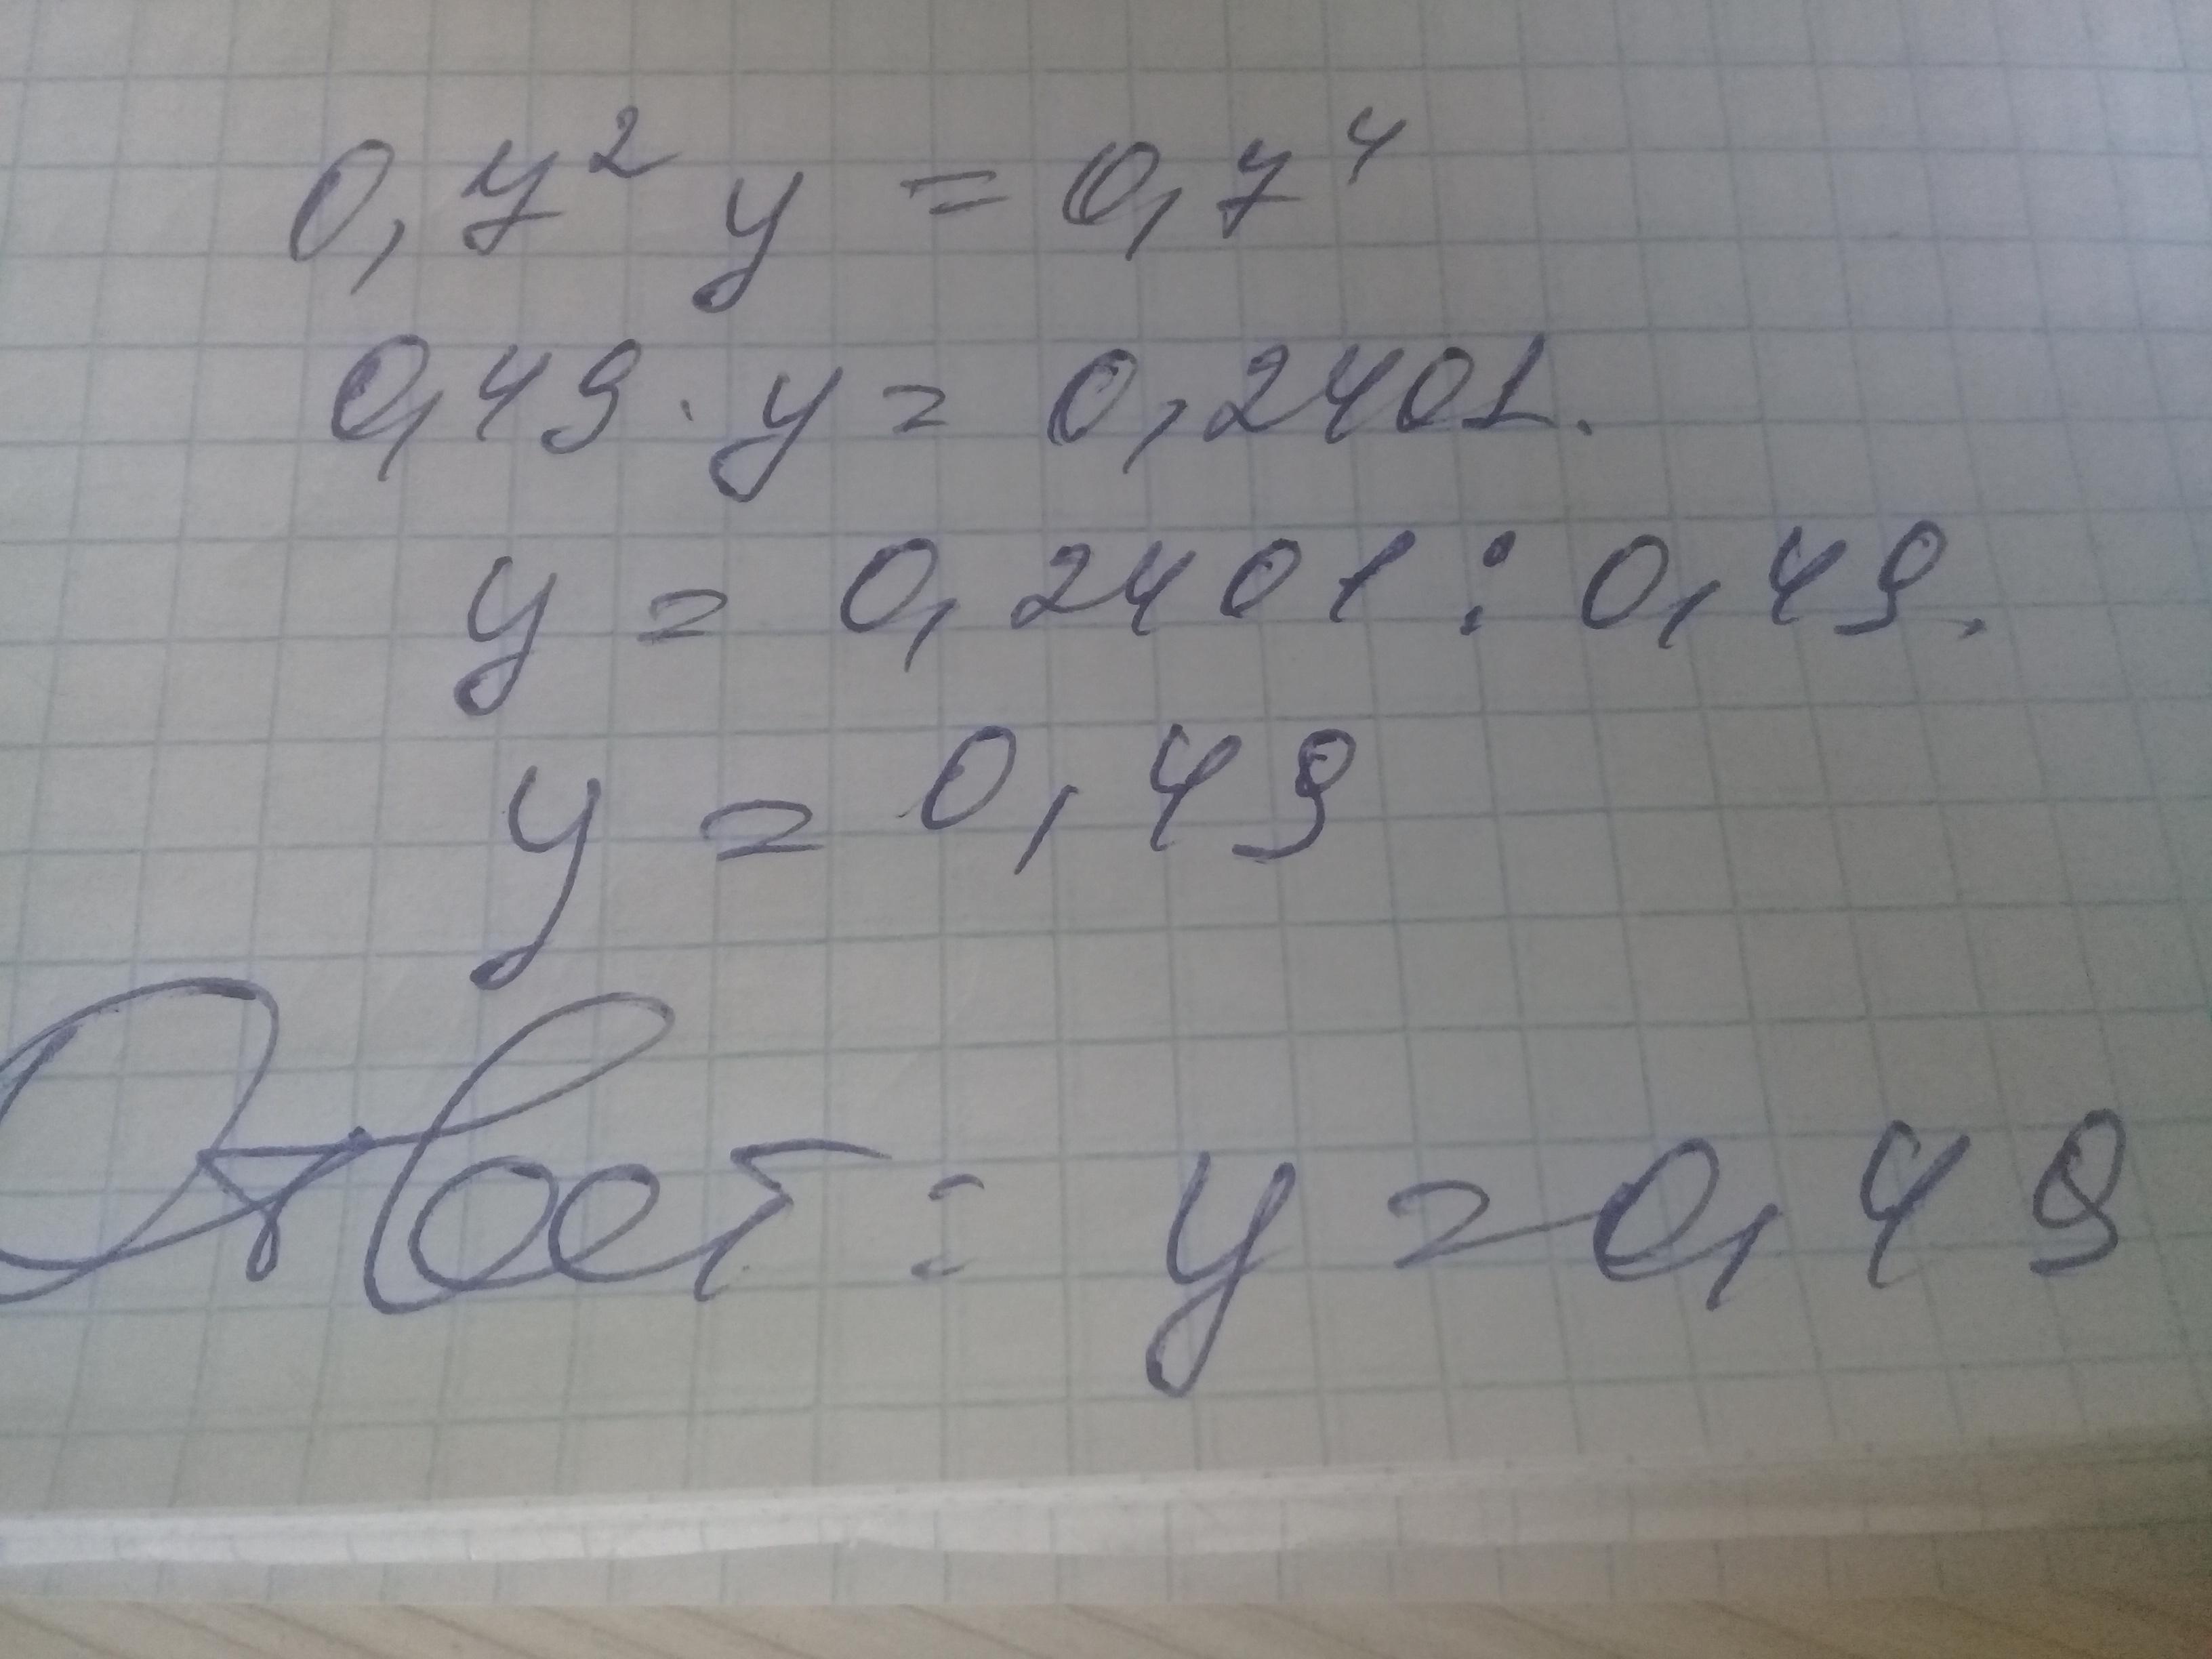 0,7² y = 0,7⁴
0,49 · y = 0,2401.
y = 0,2401 : 0,49.
y = 0,49
Ответ: y = 0,49